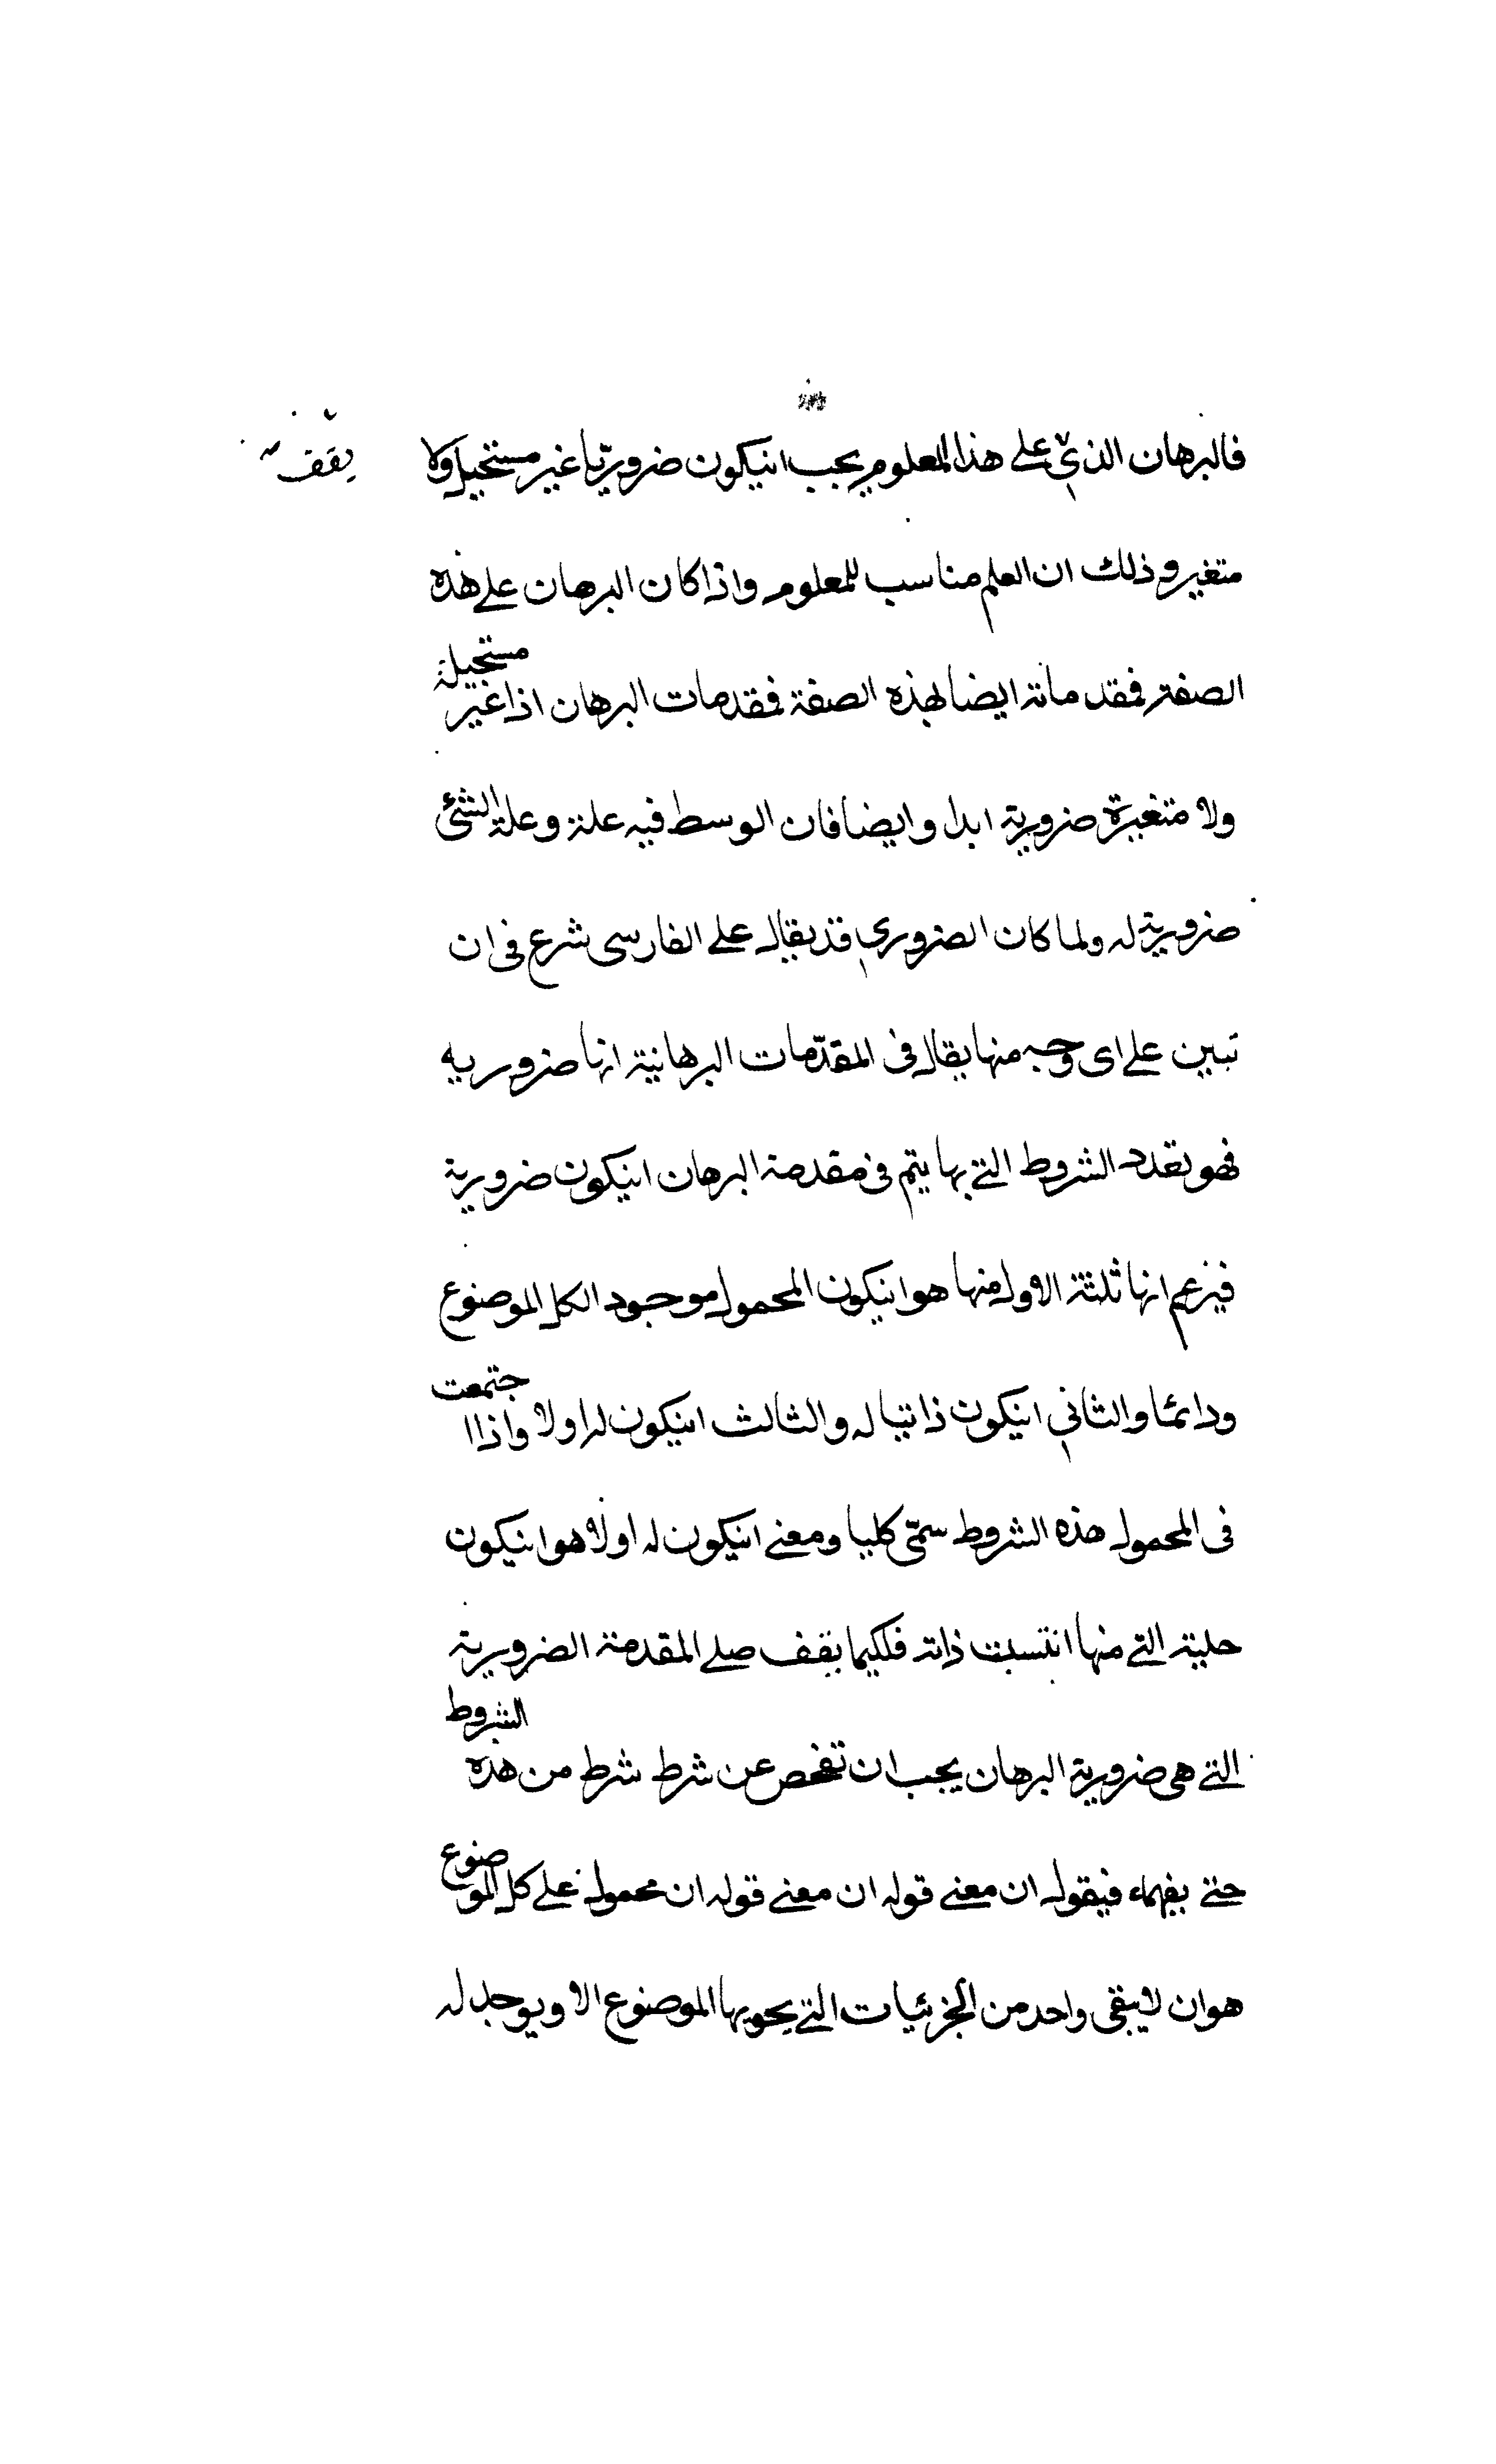 فالبرهان الذي على هذا المعلوم يجب انيكون ضروريّا غير مستحيل ولا
يقف
متغير وذلك ان العلم مناسب للمعلوم واذا كان البرهان على هذه
الصفة فمقدماته ايضا لهذه الصفة فمقدمات البرهان اذا غير مستحيلة
ولا متغيرة ضرورية ابدا وايضا فان الوسط فيه علة وعلة الشئ
ضرورية له ولما كان الضروري قد يقال على الفارسى شرع فى ان
تبين على اى وجه منها يقال فى المقدّمات البرهانية انها ضروريه
فهو يعدد الشروط التى بها يتم فى مقدمة البرهان انيكون ضرورية
فيزعم انها ثلثة الاول منها هو انيكون المحمول موجود الكل الموضوع
ودائما والثانى انيكون ذاتيا له والثالث انيكون له اولا واذا اجتمعت
فى المحمول هذه الشروط سمّى كليا ومعنى انيكون له اولا هو انيكون
حلية التى منها انتسبت ذاته فلكيما يقف صلى المقدمة الضرورية
التى هى ضرورية البرهان يجب ان تفحص عن شرط شرط من هذه الشروط
حتى يفهماء فيقول ان معنى قوله ان معنى قوله ان محمول على كل الموضوع
هو ان لا يبقى واحد من الجزئيات التى يحويها الموضوع الا ويوجد له